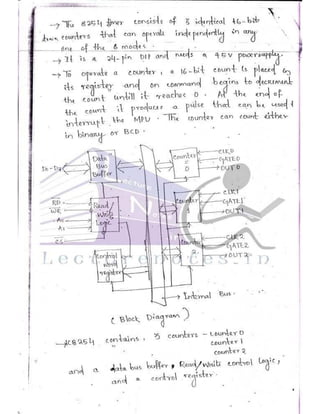 → The 8254 timer consists of 3 identical 16-bit
counters that can operate independently in any
one of the 6 modes.
→ It is a 24-pin DIP and needs a +5V power supply.
→ To operate a counter, a 16-bit count is placed in
its register and on command begins to decrement
the count untill it reaches 0. At the end of
the count it produces a pulse that can be used to
interrupt the MPU. The counter can count either
in binary or BCD.
Data
Bus
Buffer
D0-D7
Counter
0
CLK0
GATE0
OUT0
RD
WR
A0
A1
CS
Read/
Write
Logic
Counter
1
CLK1
GATE1
OUT1
Counter
2
CLK2
GATE2
OUT2
Control
word
register
LectureNotes.in
→ Internal Bus.
(Block Diagram)
→ 8254 contains, 3 counters - counter 0
counter 1
counter 2
and a data bus buffer, Read/write control logic,
and a control register.